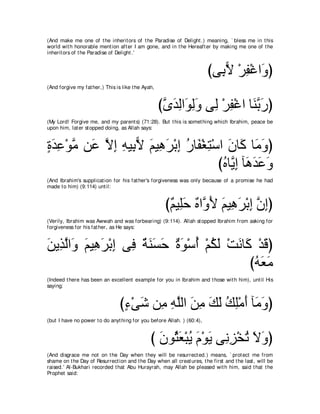 (And make me one of the inheritors of the Paradise of Delight.) meaning, `bless me in this
world with honorable mention after I am gone, and in the Hereafter by making me one of the
inheritors of the Paradise of Delight.'
(وَاغْفِرْ لاًّبِى)
(And forgive my father,) This is like the Ayah,
(رَّبَّنَا اغْفِرْ لِى وَلِوَالِدَىَّ)
(My Lord! Forgive me, and my parents) (71:28). But this is something which Ibrahim, peace be
upon him, later stopped doing, as Allah says:
(وَمَا كَانَ اسْتِغْفَارُ إِبْرَهِيمَ لاًّبِيهِ إِلاَّ عَن مَّوْعِدَةٍ
وَعَدَهَآ إِيَّاهُ)
(And Ibrahim's supplication for his father's forgiveness was only because of a promise he had
made to him) (9:114) until:
(إِنَّ إِبْرَهِيمَ لأَوَّاهٌ حَلِيمٌ)
(Verily, Ibrahim was Awwah and was forbearing) (9:114). Allah stopped Ibrahim from asking for
forgiveness for his father, as He says:
(قَدْ كَانَتْ لَكُمْ أُسْوَةٌ حَسَنَةٌ فِى إِبْرَهِيمَ وَالَّذِينَ
مَعَهُ)
(Indeed there has been an excellent example for you in Ibrahim and those with him), until His
saying:
(وَمَآ أَمْلِكُ لَكَ مِنَ اللَّهِ مِن شَىْءٍ)
(but I have no power to do anything for you before Allah. ) (60:4).
(وَلاَ تُخْزِنِى يَوْمَ يُبْعَثُونَ )
(And disgrace me not on the Day when they will be resurrected.) means, `protect me from
shame on the Day of Resurrection and the Day when all creatures, the first and the last, will be
raised.' Al-Bukhari recorded that Abu Hurayrah, may Allah be pleased with him, said that the
Prophet said: